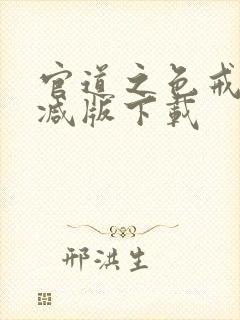 官道之色戒
减版下载
邢洪生